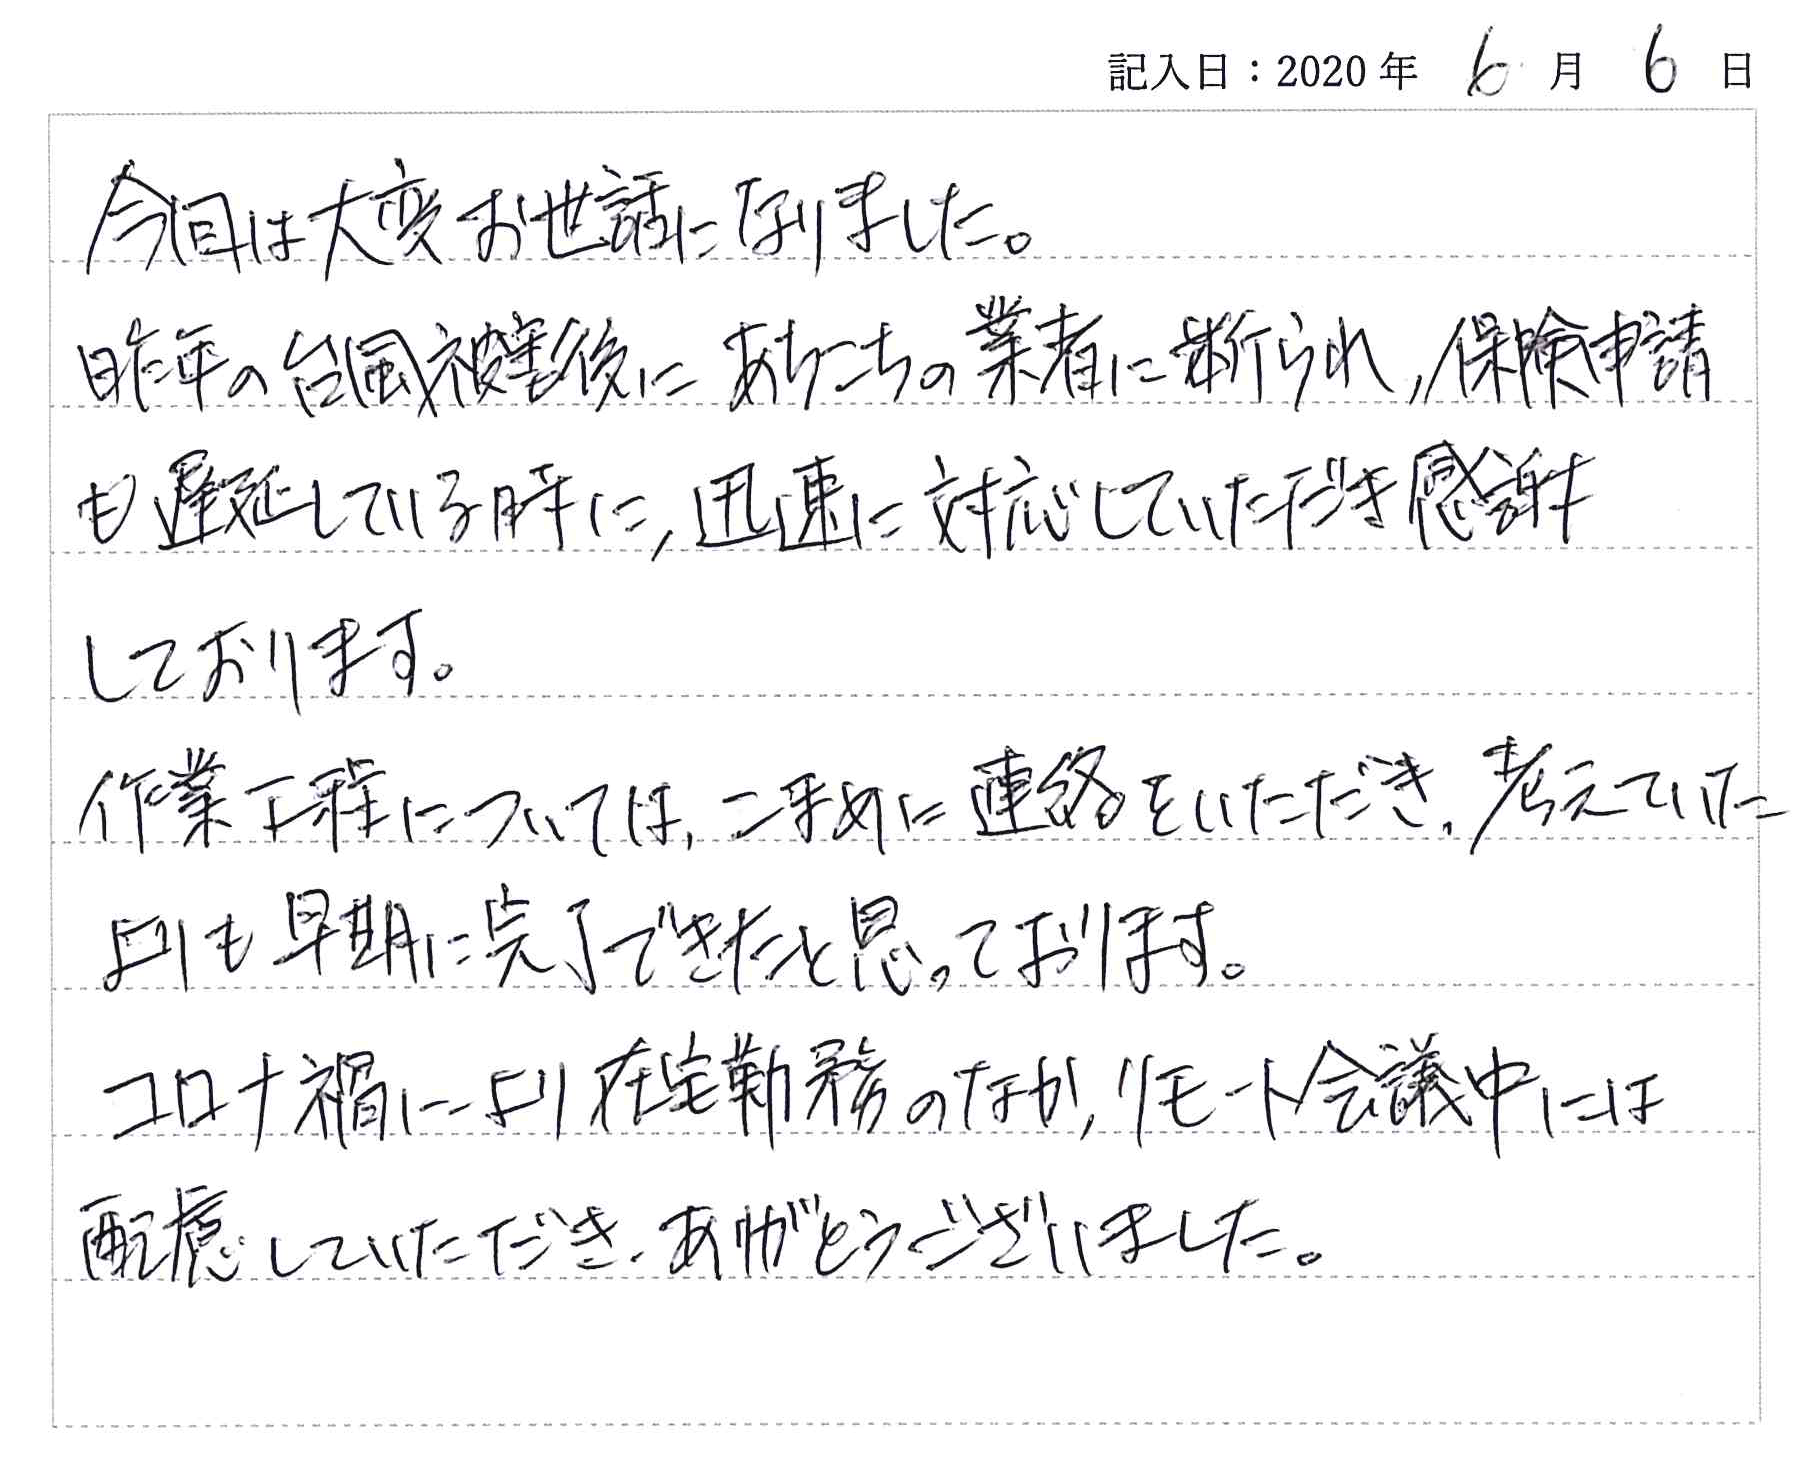 記入日：2020年 6月 6日
今回は大変お世話になりました。
昨年の台風被害後にあちこちの業者に断られ,保険申請
も遅延している時に,迅速に対応していただき感謝
しております。
作業工程については,こまめに連絡をいただき,考えていた
よりも早期に完了できたと思っております。
コロナ禍により在宅勤務のなか,リモート会議中には
配慮していただき,ありがとうございました。